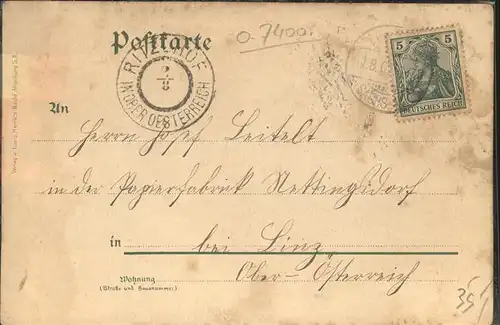 Postkarte
o-7400.
5 5
DEUTSCHES REICH
2/8
IN OBER OESTERREICH
An
Herrn Josef Leitelt
in der Papierfabrik Nettingsdorf
in bei Linz
Ober-Österreich
Wohnung
(Straße und Hausnummer)
35,